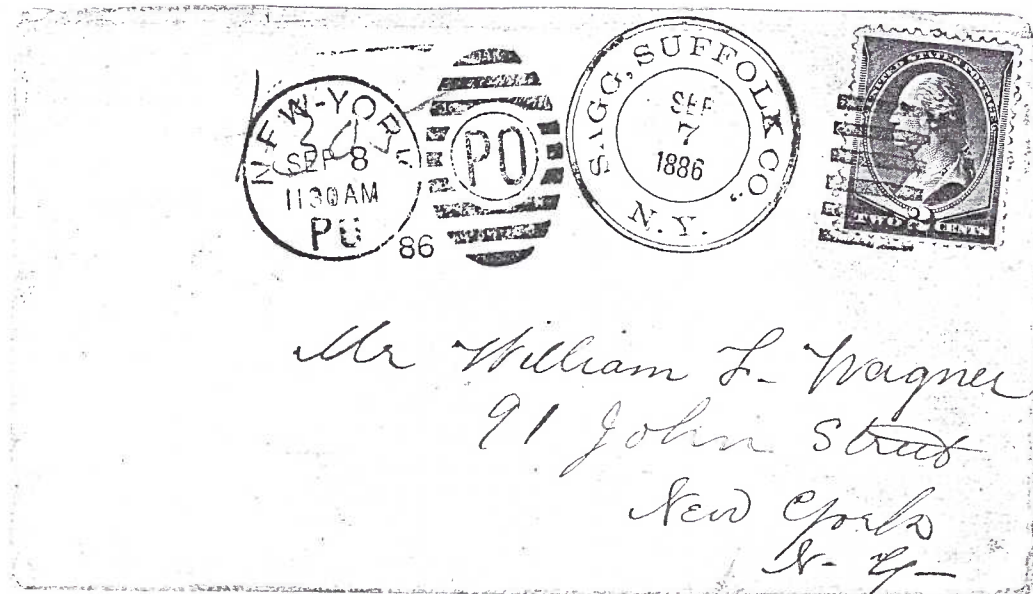 NEW-YORK
SEP 8
11 30 AM
PO
86
PO
SAGG, SUFFOLK CO.,
SEP
7
1886
N.Y.
UNITED STATES POSTAGE
TWO 2 CENTS
Mr William F. Wagner
91 John Street
New York
N. Y.